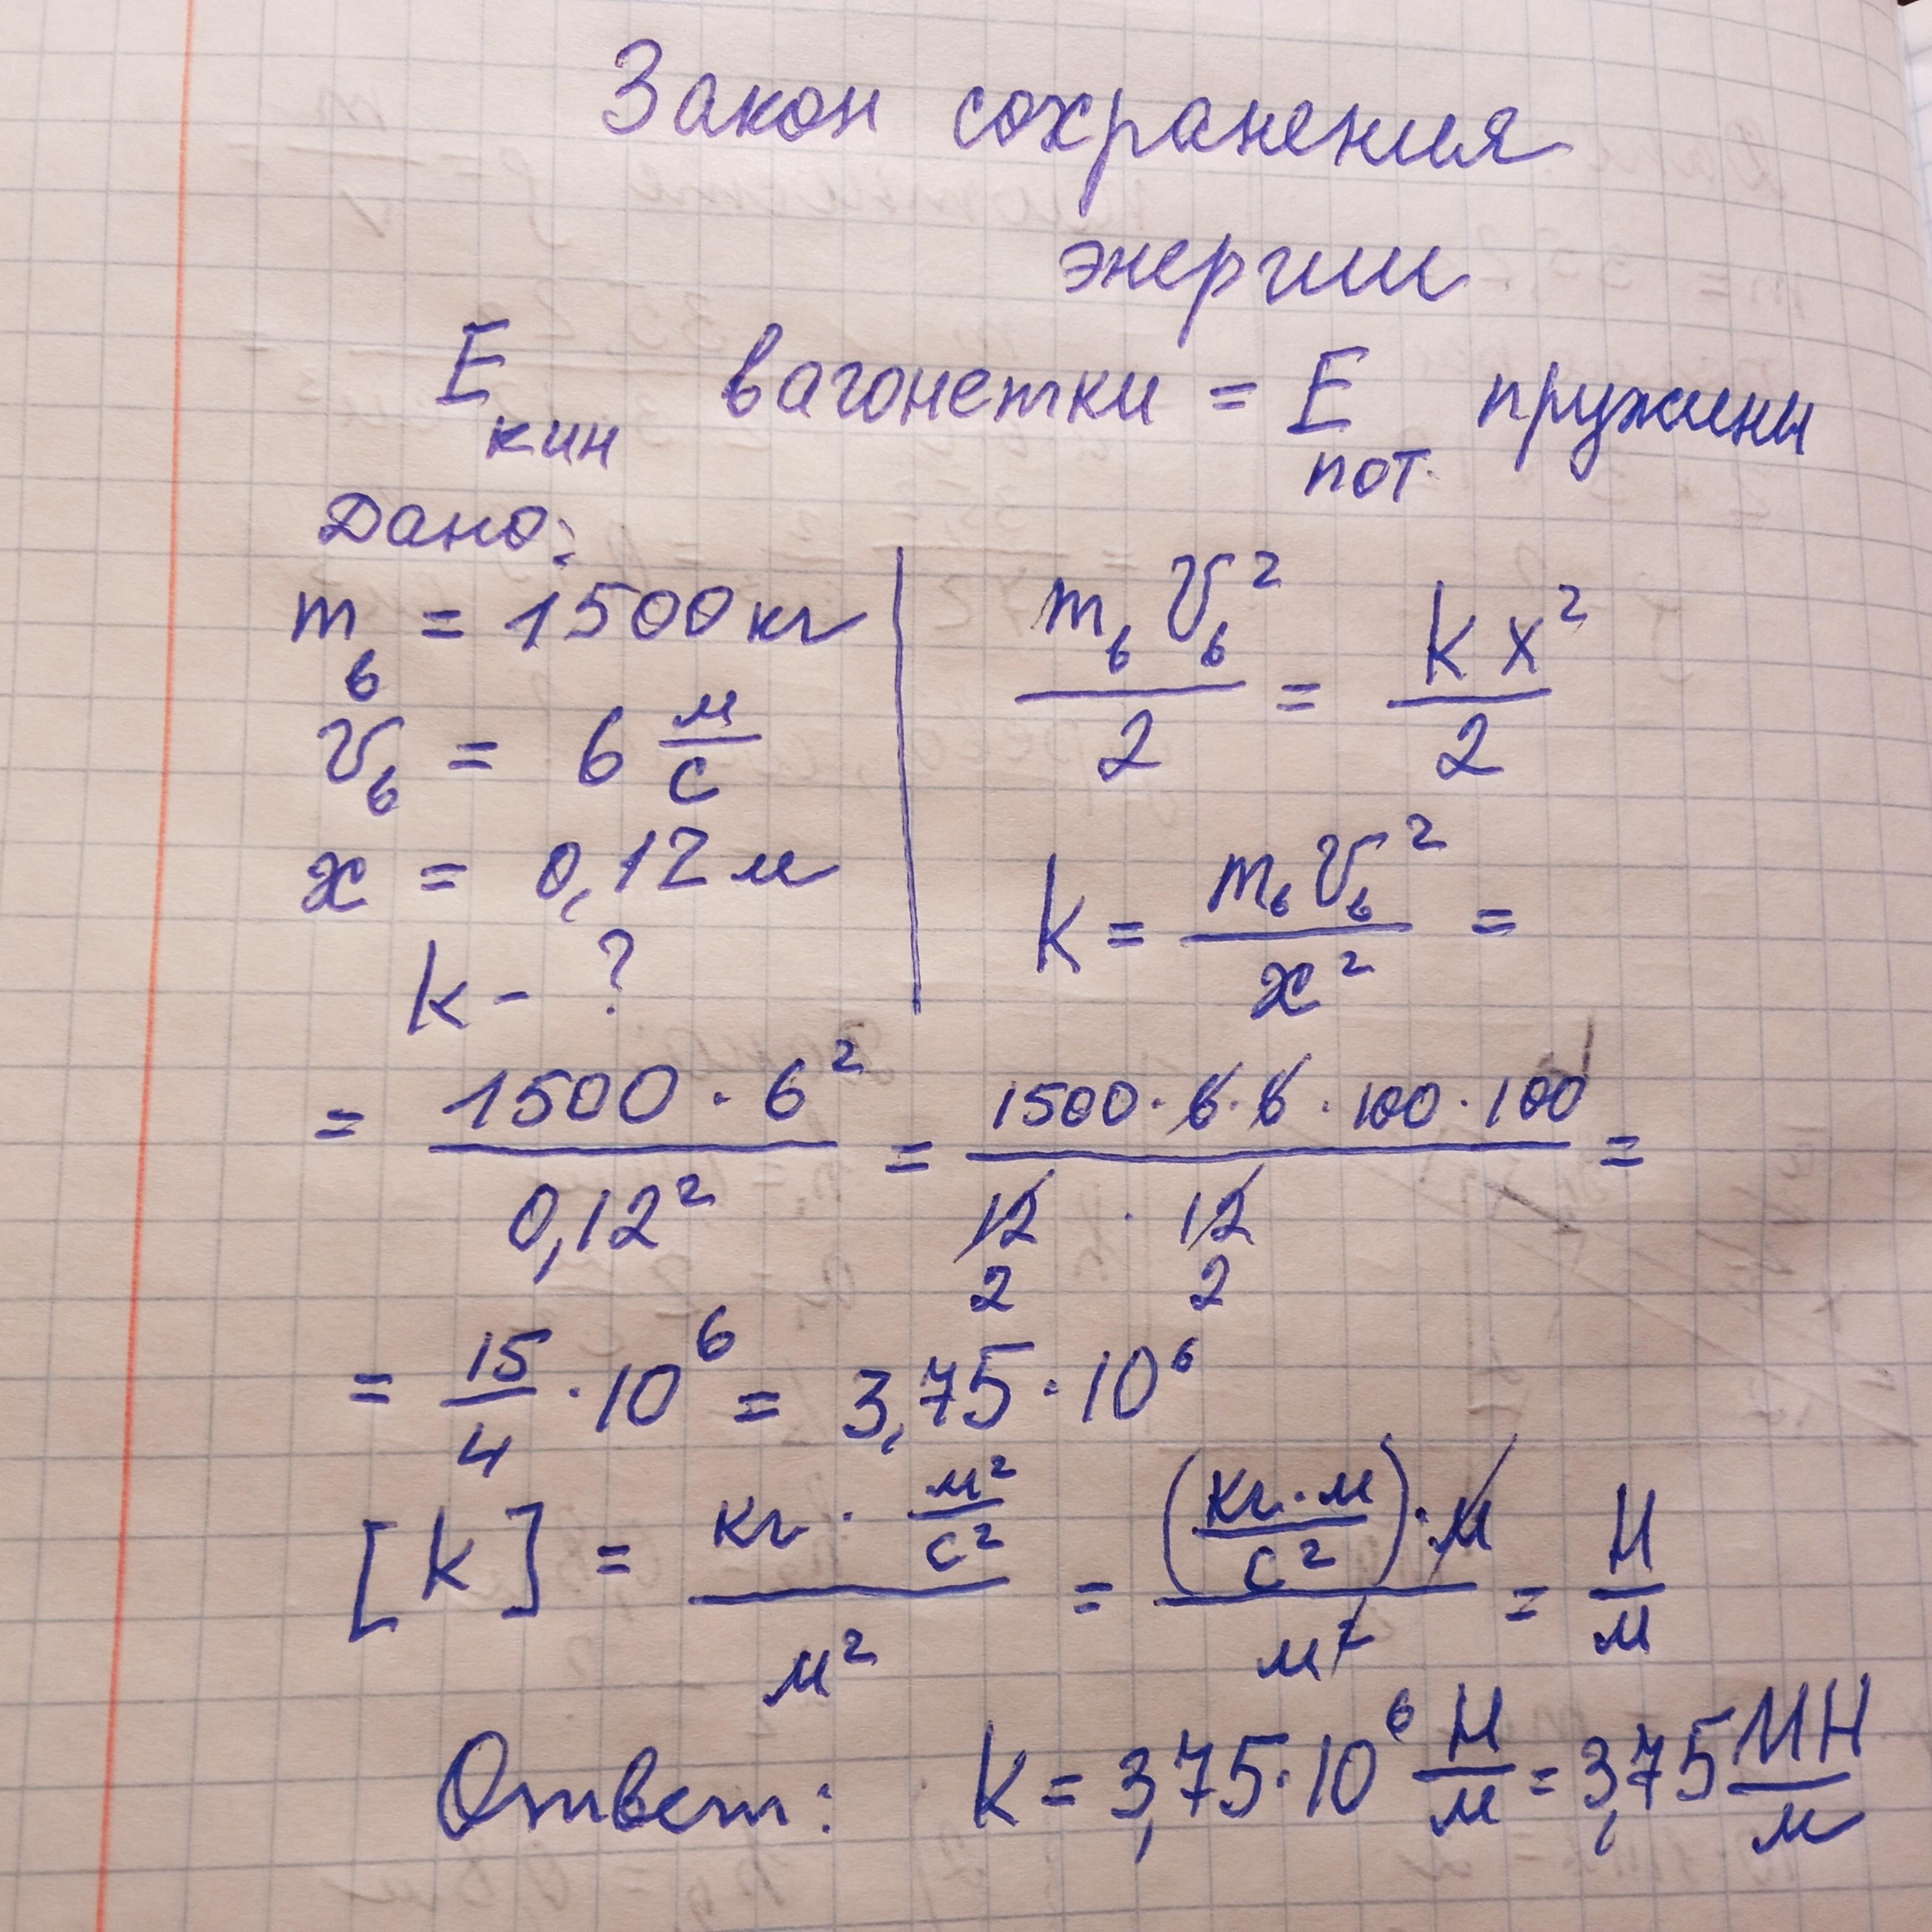 Закон сохранения
энергии
E кин вагонетки = E пот. пружины
Дано:
m в = 1500 кг
v в = 6 м/с
x = 0,12 м
k - ?
m в v в ² / 2 = k x² / 2
k = m в v в ² / x² =
= 1500 · 6² / 0,12² = 1500 · 6 · 6 · 100 · 100 / 12 · 12 =
2 2
= 15/4 · 10⁶ = 3,75 · 10⁶
[k] = кг · м²/с² / м² = (кг · м / с²) · м / м² = Н/м
Ответ: k = 3,75 · 10⁶ Н/м = 3,75 МН/м